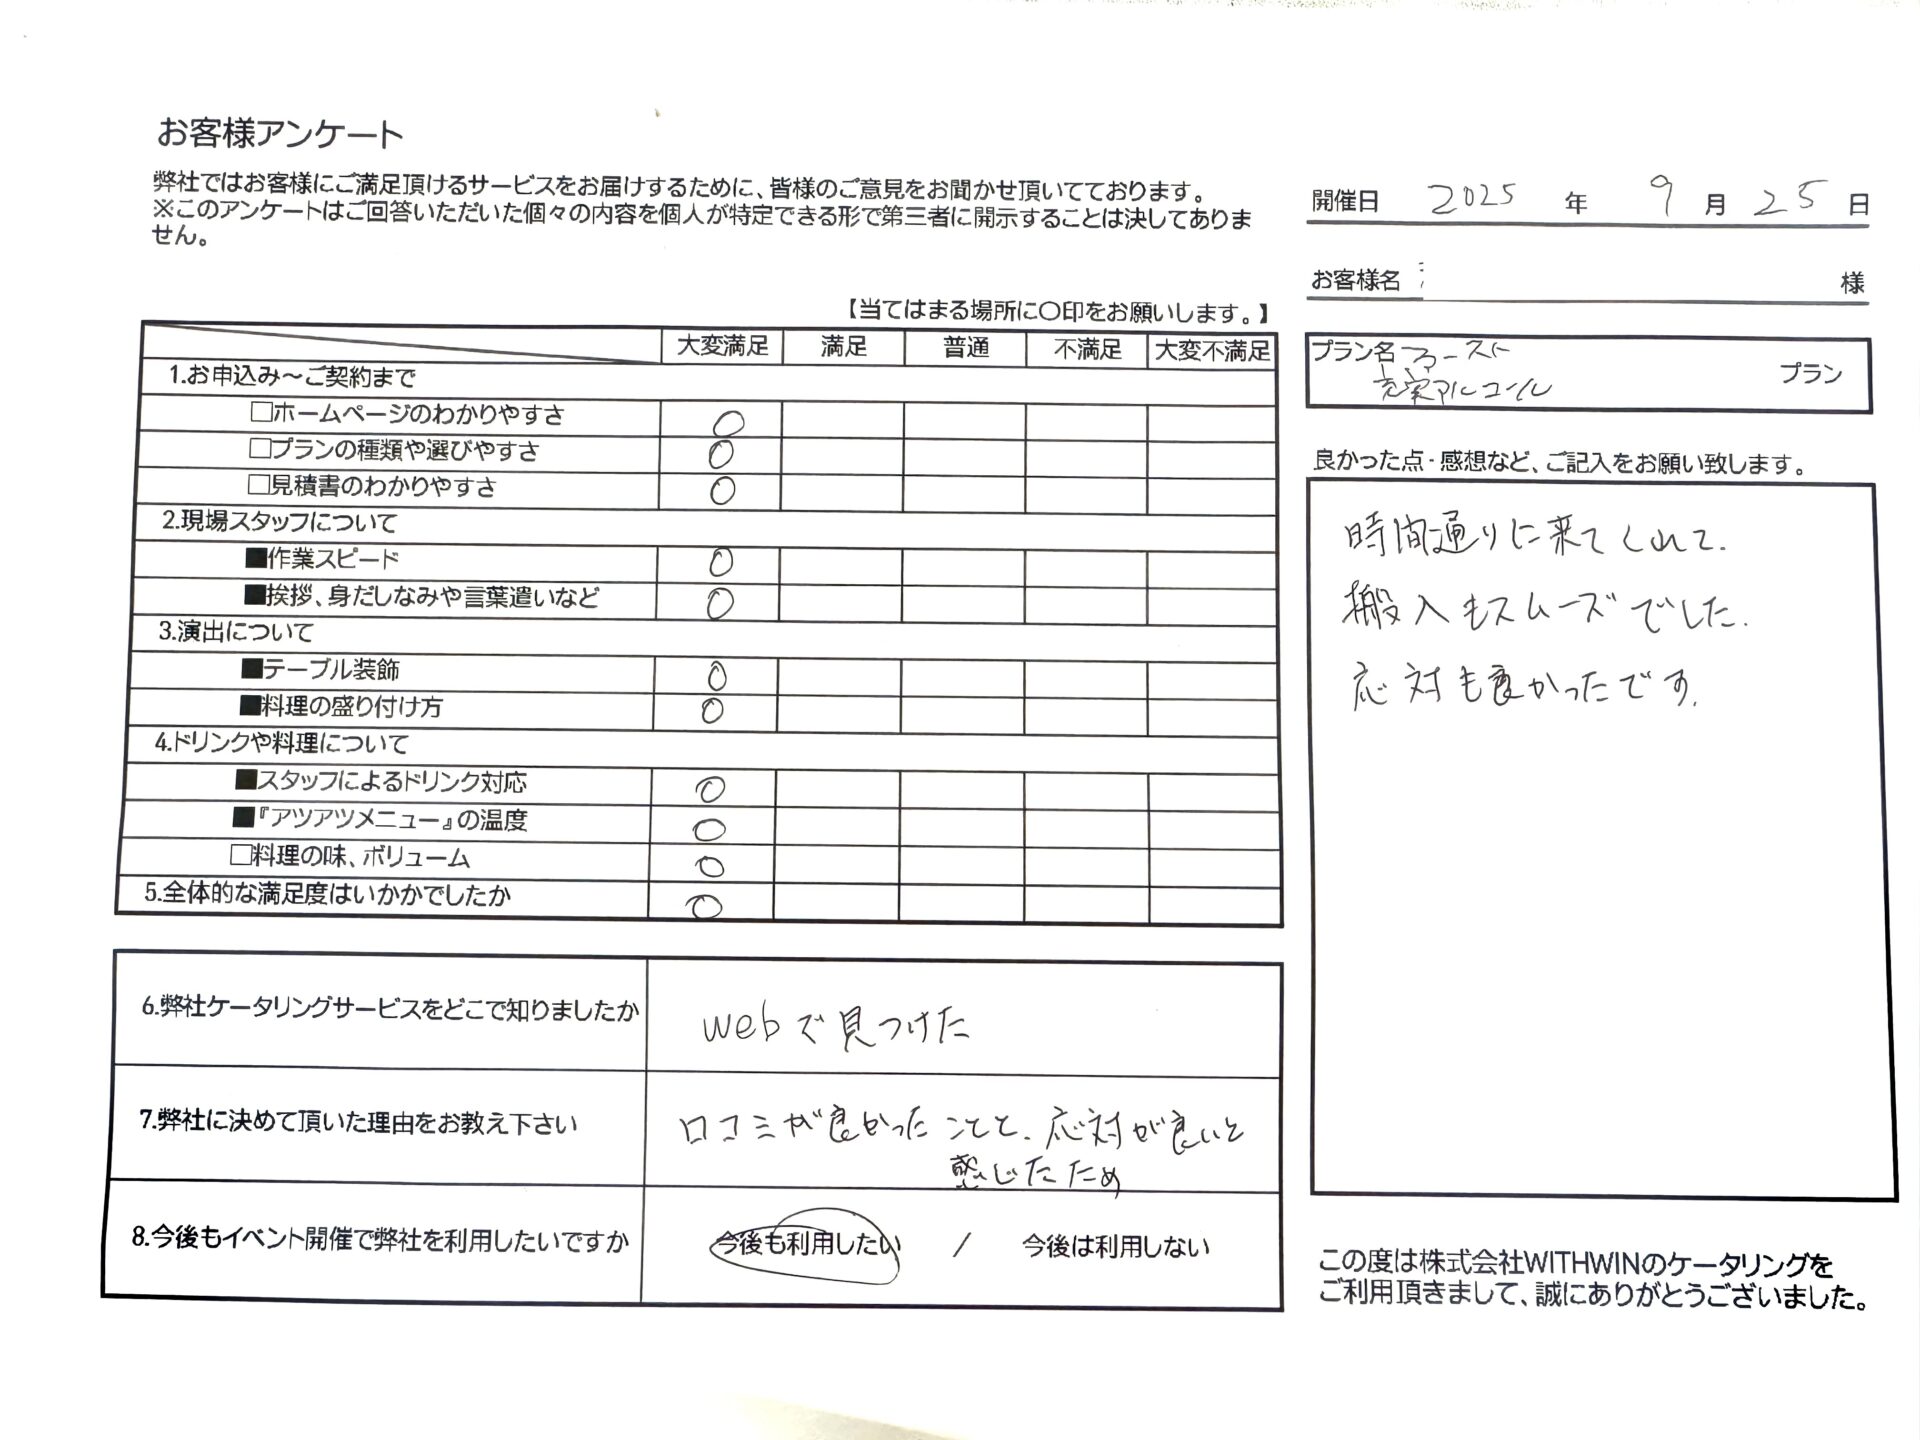 お客様アンケート
弊社ではお客様にご満足頂けるサービスをお届けするために、皆様のご意見をお聞かせ頂いてております。
※このアンケートはご回答いただいた個々の内容を個人が特定できる形で第三者に開示することは決してありま
せん。
【当てはまる場所に〇印をお願いします。】
大変満足 満足 普通 不満足 大変不満足
1.お申込み～ご契約まで
□ホームページのわかりやすさ ○
□プランの種類や選びやすさ ○
□見積書のわかりやすさ ○
2.現場スタッフについて
■作業スピード ○
■挨拶、身だしなみや言葉遣いなど ○
3.演出について
■テーブル装飾 ○
■料理の盛り付け方 ○
4.ドリンクや料理について
■スタッフによるドリンク対応 ○
■『アツアツメニュー』の温度 ○
□料理の味、ボリューム ○
5.全体的な満足度はいかかでしたか ○
6.弊社ケータリングサービスをどこで知りましたか
webで見つけた
7.弊社に決めて頂いた理由をお教え下さい
口コミが良かったことと、応対が良いと
感じたため
8.今後もイベント開催で弊社を利用したいですか
今後も利用したい / 今後は利用しない
開催日 2025 年 9 月 25 日
お客様名 様
プラン名
充実アルコール プラン
良かった点・感想など、ご記入をお願い致します。
時間通りに来てくれて、
搬入もスムーズでした。
応対も良かったです。
この度は株式会社WITHWINのケータリングを
ご利用頂きまして、誠にありがとうございました。